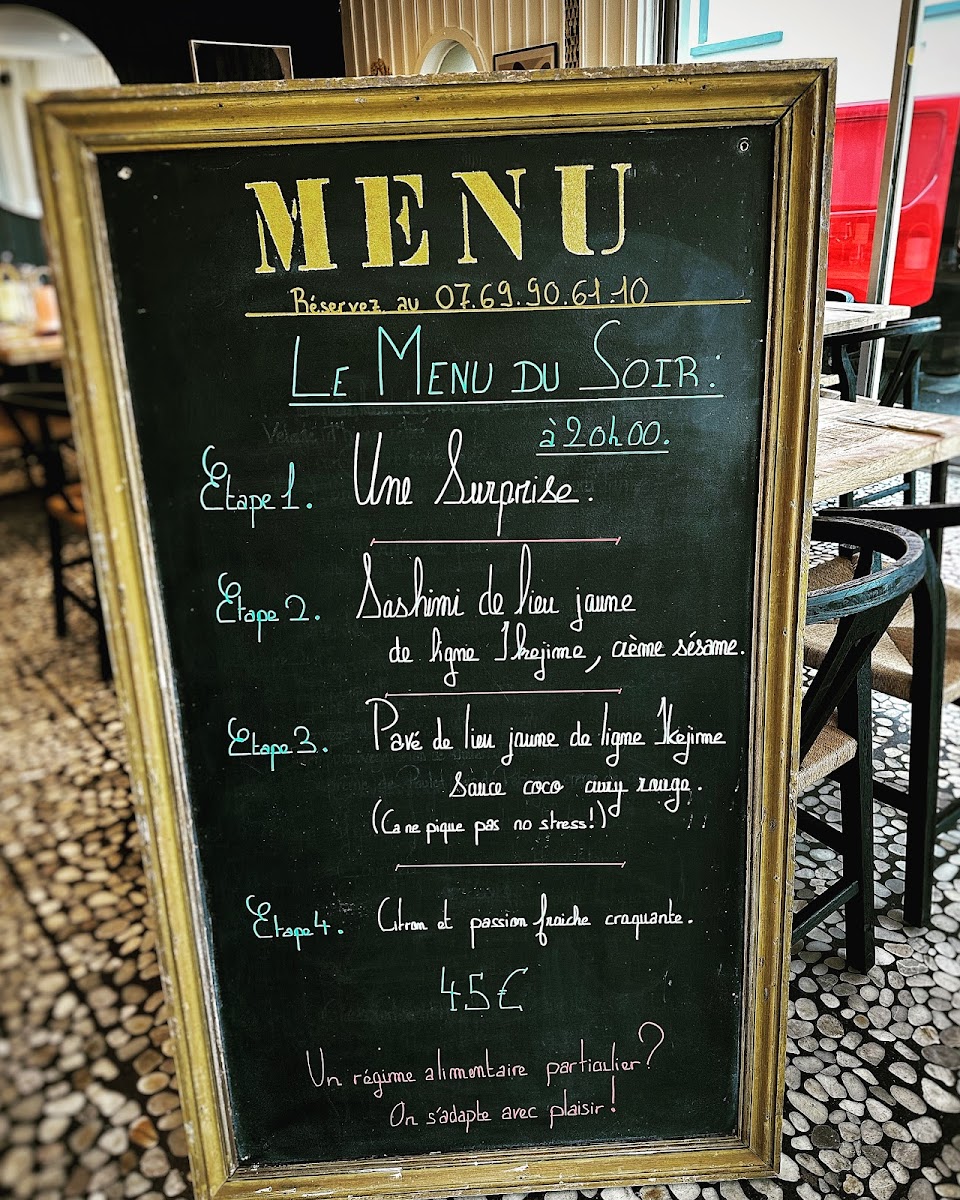 MENU
Réservez au 07.69.90.61.10
Le Menu du Soir:
à 20h00.
Etape 1. Une Surprise.
Etape 2. Sashimi de lieu jaune
de ligne Ikejime, crème sésame.
Etape 3. Pavé de lieu jaune de ligne Ikejime
Sauce coco curry rouge.
(Ca ne pique pas no stress!)
Etape 4. Citron et passion fraiche craquante.
45€
Un régime alimentaire particulier?
On s'adapte avec plaisir!